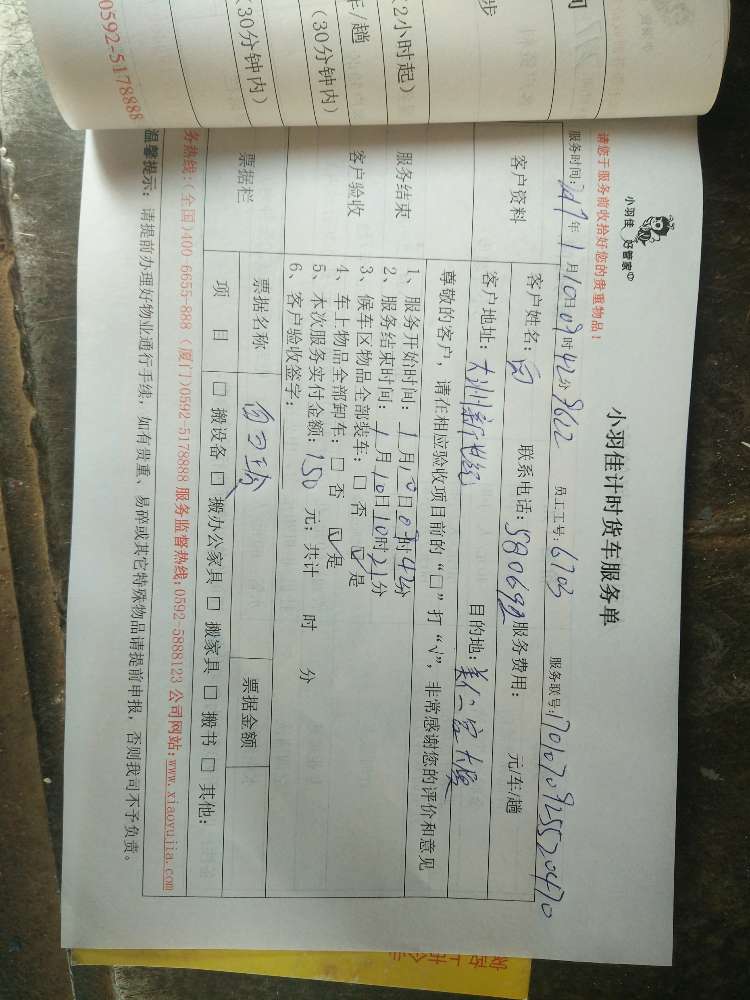 小羽佳 好管家
小羽佳计时货车服务单
请您于服务前收拾好您的贵重物品！
服务时间：2017年1月10日09时42分 员工工号：6703 服务联号：
客户资料
客户姓名：白 联系电话： 服务费用： 元/车/趟
客户地址：大洲新世纪 目的地：美仁宫大厦
尊敬的客户，请在相应验收项目前的“□”打“√”，非常感谢您的评价和意见
服务结束
客户验收
1、服务开始时间：1月10日09时42分
2、服务结束时间：1月10日10时21分
3、候车区物品全部装车：□ 否 ☑ 是
4、车上物品全部卸车：□ 否 ☑ 是
5、本次服务实付金额：150 元；共计 时 分
6、客户验收签字：
票据栏
票据名称 票据金额
项 目 □ 搬设备 □ 搬办公家具 □ 搬家具 □ 搬书 □ 其他：
务热线：(全国)400-6655-888 (厦门)0592-5178888 服务监督热线：0592-5888123 公司网站：www.xiaoyujia.com
温馨提示：请提前办理好物业通行手续，如有贵重、易碎或其它特殊物品请提前申报，否则我司不予负责。
步
2小时起)
车/趟
(30分钟内)
(30分钟内)
0592-5178888